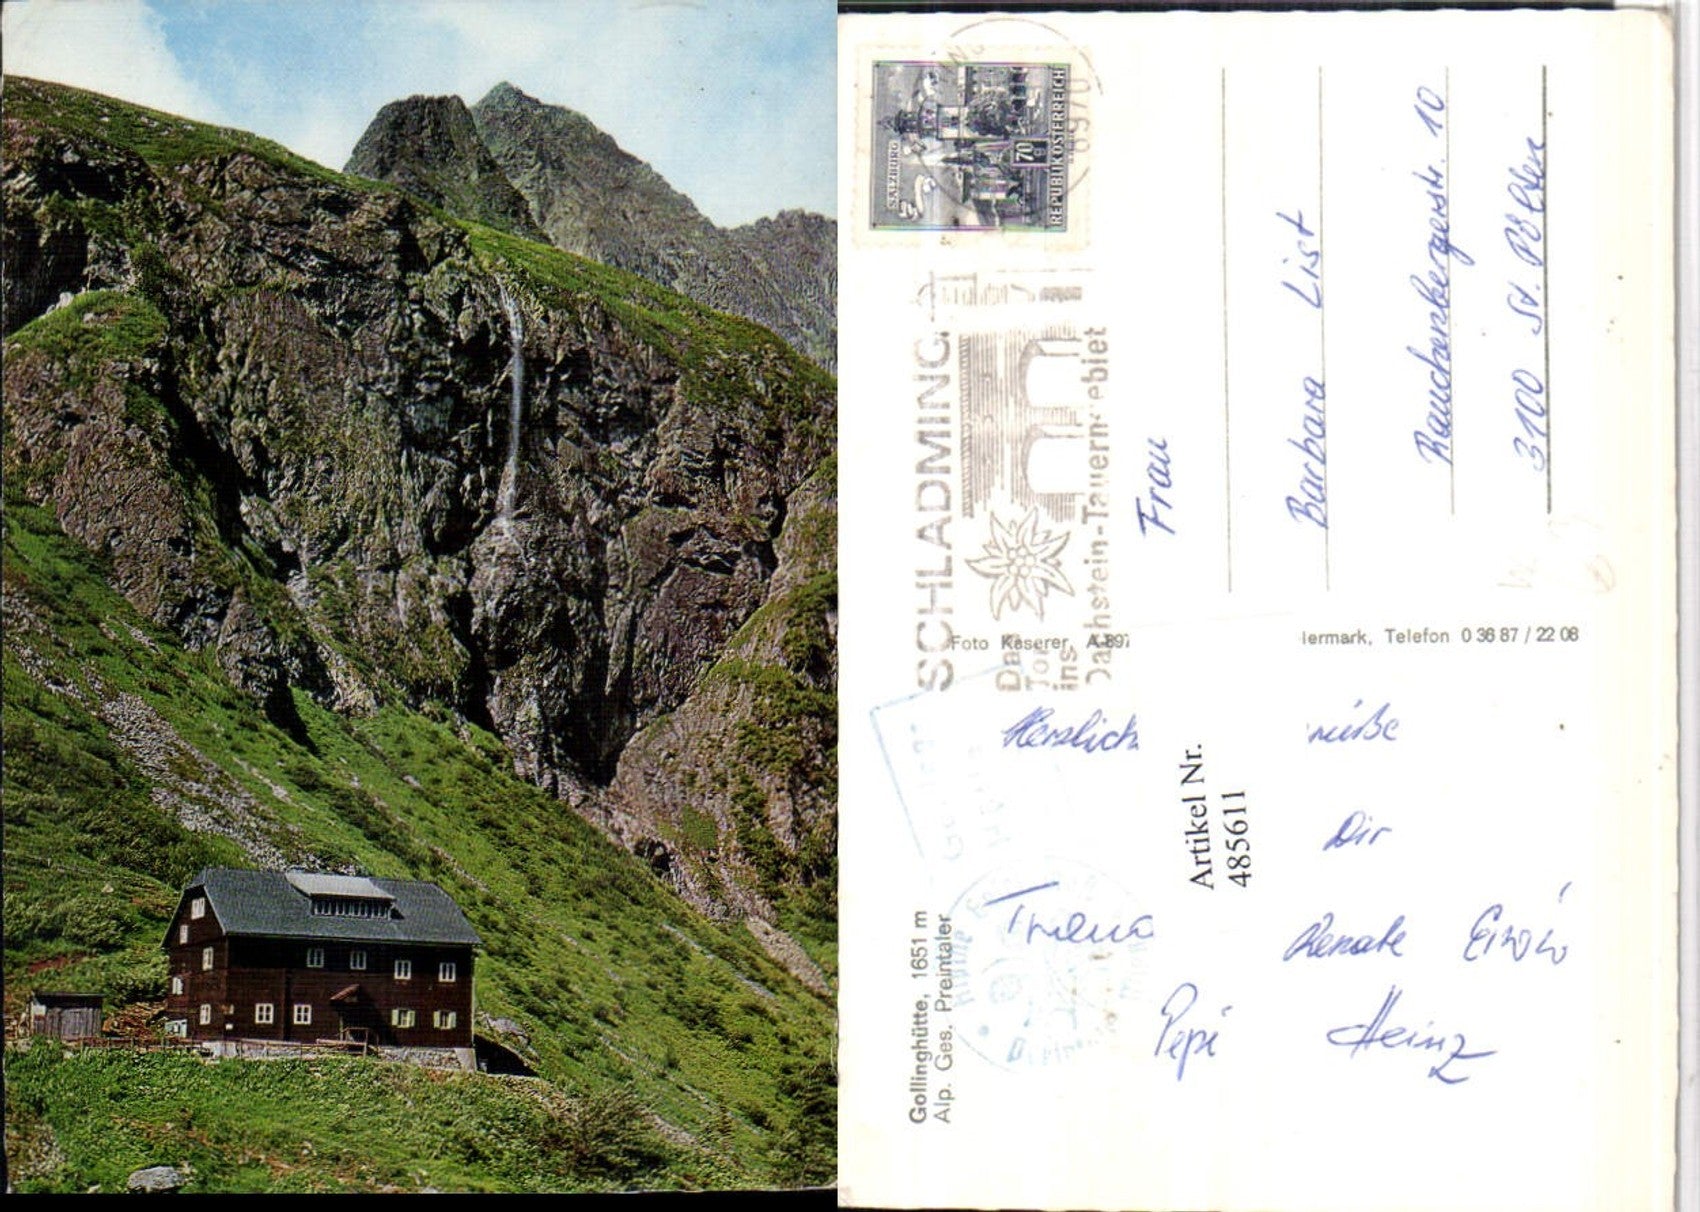 SALZBURG
70
g
REPUBLIK ÖSTERREICH
8970
SCHLADMING
Das
Tor
ins
Dachstein-Tauerngebiet
Frau
Barbara List
Rauchenbergerstr. 10
3100 St. Pölten
Foto Kaserer, A-897
iermark, Telefon 0 36 87 / 22 08
Herzlich
rüße
Dir
Renate Erwin
Pepi Heinz
Artikel Nr.
485611
Gollinghütte, 1651 m
Alp. Ges. Preintaler